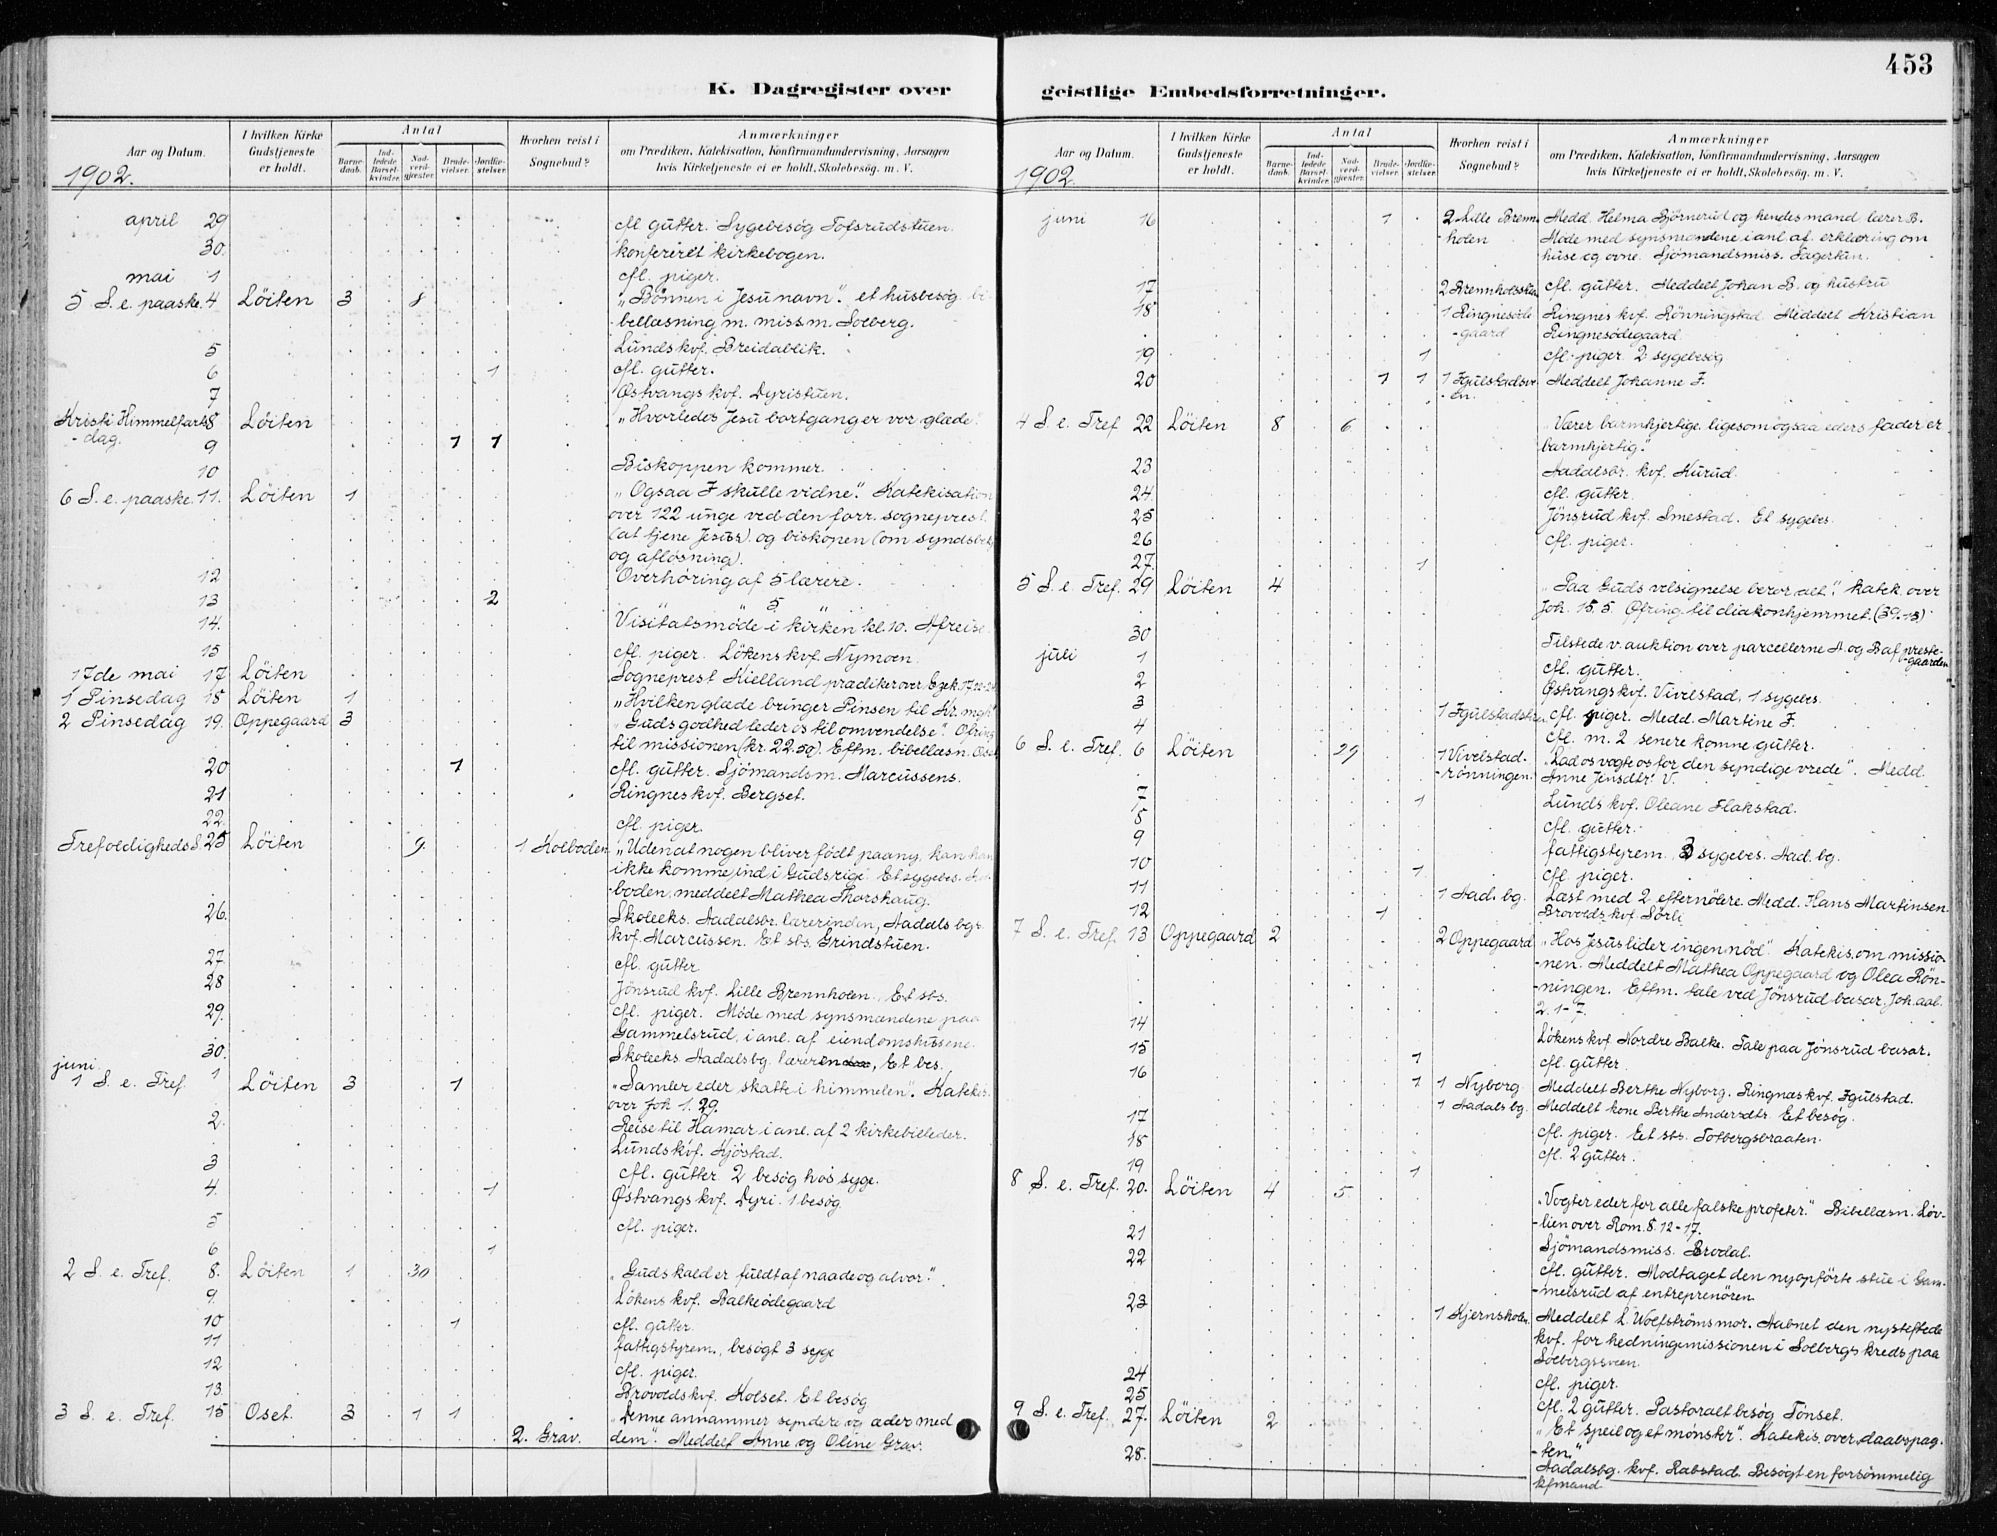 453
K. Dagregister over geistlige Embedsforretninger.
Aar og Datum.
I hvilken Kirke Gudstjeneste er holdt.
Antal
Barnedaab.
Indledede Barselkvinder.
Nadverdgjæster.
Brudevielser.
Jordfæstelser.
Hvorhen reist i Sognebud?
Anmærkninger
om Prædiken, Katekisation, Konfirmandundervisning, Aarsagen
hvis Kirketjeneste ei er holdt, Skolebesøg. m. V.
1902.
april 29 cfl. gutter. Sygebesøg Tofsrudstuen.
30. konfereret kirkebogen.
mai 1 cfl. piger.
5 S. e. paaske. 4 Löiten 3 8 „Bønnen i Jesu navn". et husbesøg. bi-
bellæsning m. miss.m. Solberg.
5 Lunds kvf. Breidablik.
6 1 cfl. gutter.
7 Østvangs kvf. Dyristuen.
Kristi Himmelfarts 8 Löiten „Hvorledes Jesu bortgang er vor glæde".
-dag.
9 1 1
10 Biskoppen kommer.
6 S. e. paaske. 11. Löiten 1 „Ogsaa I skulle vidne". Katekisation
over 122 unge ved den forr. sogneprest.
(at tjene Jesus) og biskopen (om syndsbek
og afløsning).
12 Overhöring af 5 lærere.
13 2 5
14. Visitatsmøde i kirken kl. 10. Afreise.
15 cfl. piger. Lökens kvf. Nymoen.
17de mai 17 Löiten Sogneprest Kielland prædiker over Ezek 17, 22-24
1 Pinsedag 18 Löiten 1 „Hvilken glæde bringer Pinsen til Kr. mgh"
2 Pinsedag 19. Oppegaard 3 „Guds godhed leder os til omvendelse". Ofring
til missionen (kr. 22.50). Eftm. bibellæsn. Oset
20 1 cfl. gutter. Sjömandsm. Marcussens.
21 Ringnes kvf. Bergset.
22. cfl. piger.
Trefoldigheds S. 25 Löiten 9. 1 Kolboden „Uden at nogen bliver født paany, kan han
ikke komme ind i Gudsrige". Et sygebes. Kol-
boden, meddelt Mathea Thorshaug.
26. Skoleeks. Aadalsbr. lærerinden, Aadals bgs.
kvf. Marcussen. Et sbs. Grindstuen.
27. cfl. gutter
28 Jönsrud kvf. Lille Brennholen. Et sbs.
29. cfl. piger. Møde med synsmændene paa
Gammelsrud, i anl. af eiendomshusene.
30. Skoleeks. Aadalsbg. læreren, Et bes.
juni
1 S. e. Tref. 1 Löiten 3 1 „Samler eder skatte i himmelen". Katekis.
over Joh 1. 29.
2. Reise til Hamar i anl. af 2 kirkebilleder.
Lunds kvf. Kjöstad.
3 cfl. gutter. 2 besøg hos syge.
4. 1 Østvangs kvf. Dyri. 1 besøg
5 cfl. piger.
6 1
2 S. e. Tref. 8. Löiten 1 30 „Guds kald er fuldt af naade og alvor".
9. Lökens kvf. Balkeödegaard
10 1 cfl. gutter.
11 fattigstyrem., besøgt 3 syge
12 cfl. piger.
13. Brovolds kvf. Kolset. Et besøg
3 S. e. Tref. 15 Oset. 3 1 1 „Denne annammer syndere og æder med
2. Grav. dem". Meddelt Anne og Oline Grav.
Aar og Datum.
I hvilken Kirke Gudstjeneste er holdt.
Antal
Barnedaab.
Indledede Barselkvinder.
Nadverdgjæster.
Brudevielser.
Jordfæstelser.
Hvorhen reist i Sognebud?
Anmærkninger
om Prædiken, Katekisation, Konfirmandundervisning, Aarsagen
hvis Kirketjeneste ei er holdt, Skolebesög. m. V.
1902.
juni 16 1 2 Lille Brenn- Medd. Helma Bjørnerud og hendes mand lærer B.
-holen Møde med synsmændene i anl. af erklæring om
huse og ovne. Sjömandsmiss. Fagerlin.
17 2 Brennholsstuen cfl. gutter. Meddelt Johan B. og hustru
18 1 Ringnesöde Ringnes kvf. Rönningstad. Meddelt Kristian
-gaard Ringnesödegaard.
19 1 cfl. piger 2 sygebesøg
20 1 1 1 Fgulstadsv- Meddelt Johanne F.
-en.
4 S. e. Tref 22 Löiten 8 6 „Værer barmhjertige, ligesom ogsaa eders fader er
barmhjertig."
23 Aadalsbr. kvf. Kurud.
24. cfl. gutter.
25 Jönsrud kvf. Smestad. Et sygebes.
26 cfl. piger.
27. 1
5 S. e. Tref. 29 Löiten 4 „Paa Guds velsignelse beror alt". Katek. over
Joh. 15. 5 Ofring til diakonhjemmet. (39.13)
30 Tilstede v. auktion over parcellerne A. og B af preste-
-gaarden
juli 1 cfl. gutter.
2 Østvangs kvf. Vivelstad, 1 sygebes.
3 1 Fgulstadstuen cfl. piger. Medd. Martine F.
4 cfl. m. 2 senere komne gutter.
6 S. e. Tref. 6 Löiten 29 1 Vivelstad- „Lad os vogte os for den syndige vrede". Medd.
-rønningen. Anne Jensdtr. V.
7 1 Lunds kvf. Oleane Flakstad.
8 cfl. gutter.
9 fattigstyrem. 3 sygebes. Aad. bg.
10 1 cfl. piger.
11 1 Aad. bg. Læst med 2 efternølere. Medd. Hans Martinsen.
12 1 Brovolds kvf. Sörli
7 S. e. Tref. 13 Oppegaard 2 2 Oppegaard „Hos Jesus lider ingen nød" Katekis. om missio-
-nen. Meddelt Mathea Oppegaard og Olea Rön-
-ningen. Eftm. tale ved Jönsrud basar. Joh. aab.
2. 1-7.
14 Lökens kvf. Nordre Balke. Tale paa Jönsrud basar.
15 1 cfl. gutter.
16 1 1 Nyborg. Meddelt Berthe Nyborg. Ringnæs kvf. Fgulstad.
1 Aadals bg. Meddelt kone Berthe Andersdtr. Et besøg.
17 cfl. piger. Eet sbs. Tofbergsbraaten.
18 cfl. 2 gutter.
19 1
8 S. e. Tref. 20. Löiten 4 5 „Vogter eder for alle falske profeter." Bibellæsn. Løv-
-lien over Rom. 8. 12-17.
21 Sjömandsmiss. Brodal.
22 cfl. gutter. Modtaget den nyopförte stue i Gam-
-melsrud af entreprenören.
23 1 Kjernsholen. Meddelt L. Wolfströms mor. Aabnet den nystiftede
kvf. for hedningemissionen i Solbergs kreds paa
Solbergssveen.
24 cfl. piger.
25 cfl. 2 gutter. Pastoralt besøg Tønset.
9 S. e. Tref. 27. Löiten 2 „Et speil og et mönster". Katekis. over daabspag-
-ten."
28. Aadalsbg. kvf. Rabstad. Besøgt en forsömmelig
kfmand